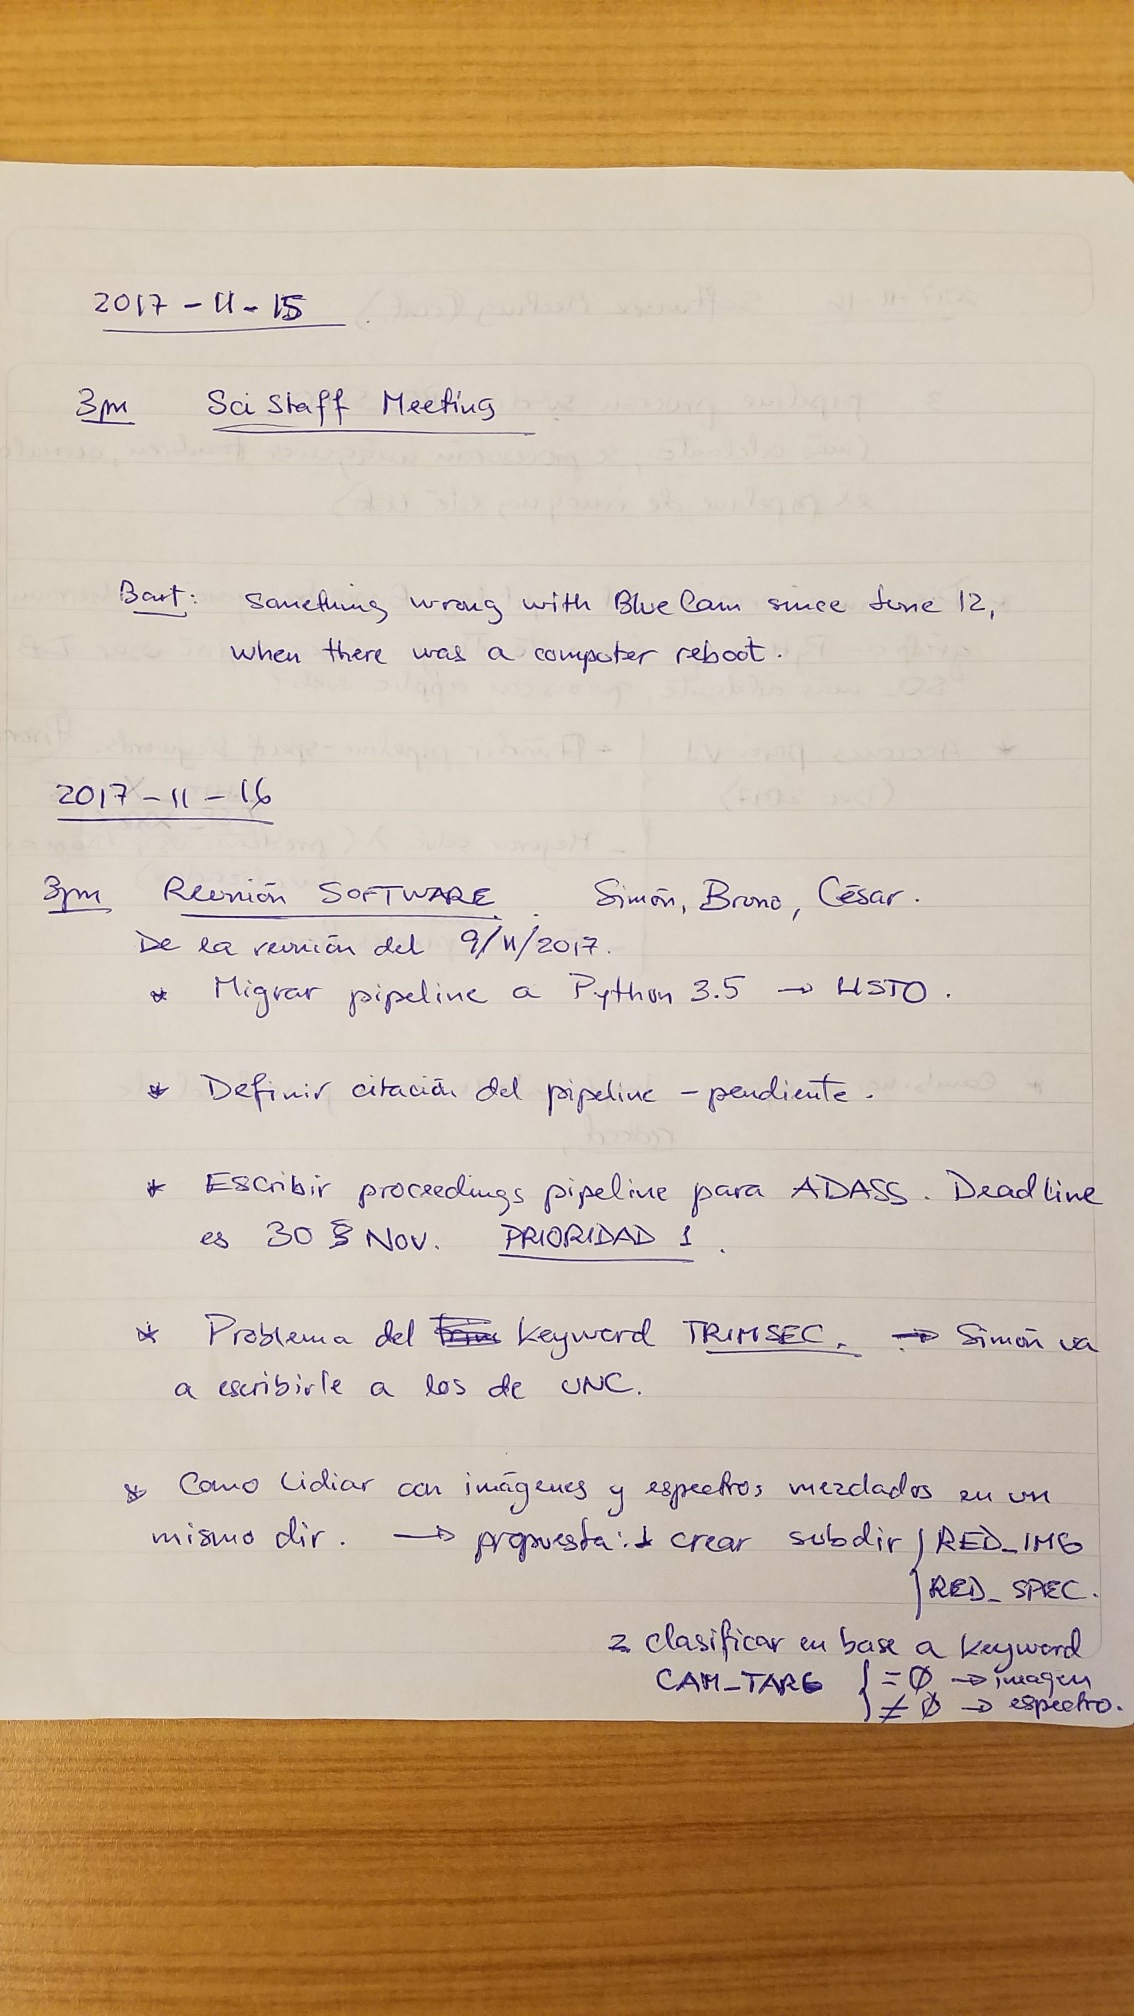 2017-11-15
3pm Sci Staff Meeting
Bart: Something wrong with Blue Cam since June 12,
when there was a computer reboot.
2017-11-16
3pm Reunión SOFTWARE. Simón, Bruno, César.
De la reunión del 9/11/2017.
* Migrar pipeline a Python 3.5 → LISTO.
* Definir citación del pipeline - pendiente.
* Escribir proceedings pipeline para ADASS. Deadline
es 30 Nov. PRIORIDAD 1.
* Problema del Keyword TRIMSEC. → Simón va
a escribirle a los de UNC.
* Como lidiar con imágenes y espectros mezclados en un
mismo dir. → propuesta: 1 crear subdir { RED_IMG
{ RED_SPEC.
2 clasificar en base a Keyword
CAM_TARG { = Ø → imagen
≠ Ø → espectro.